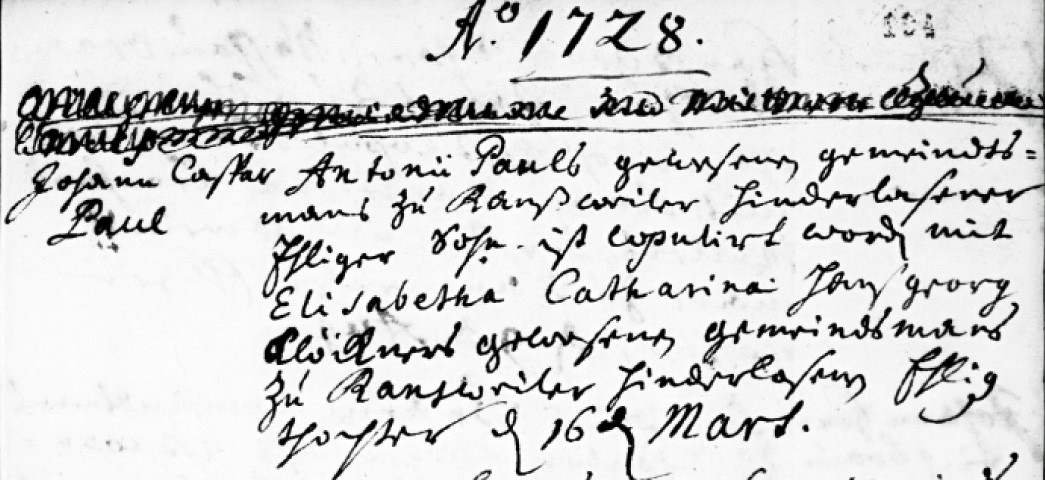 Aº. 1728.
194
und
Johann Caspar Antonii Pauls gewesenen gemeindts=
Paul mans zu Ranßweiler hinderlasener
Ehliger Sohn. ist copulirt word mit
Elisabetha Catharina Hansgeorg
Klöckners gewesenen gemeindsmans
zu Ransweiler hinderlasene Ehlig
thochter d 16 d Mart.